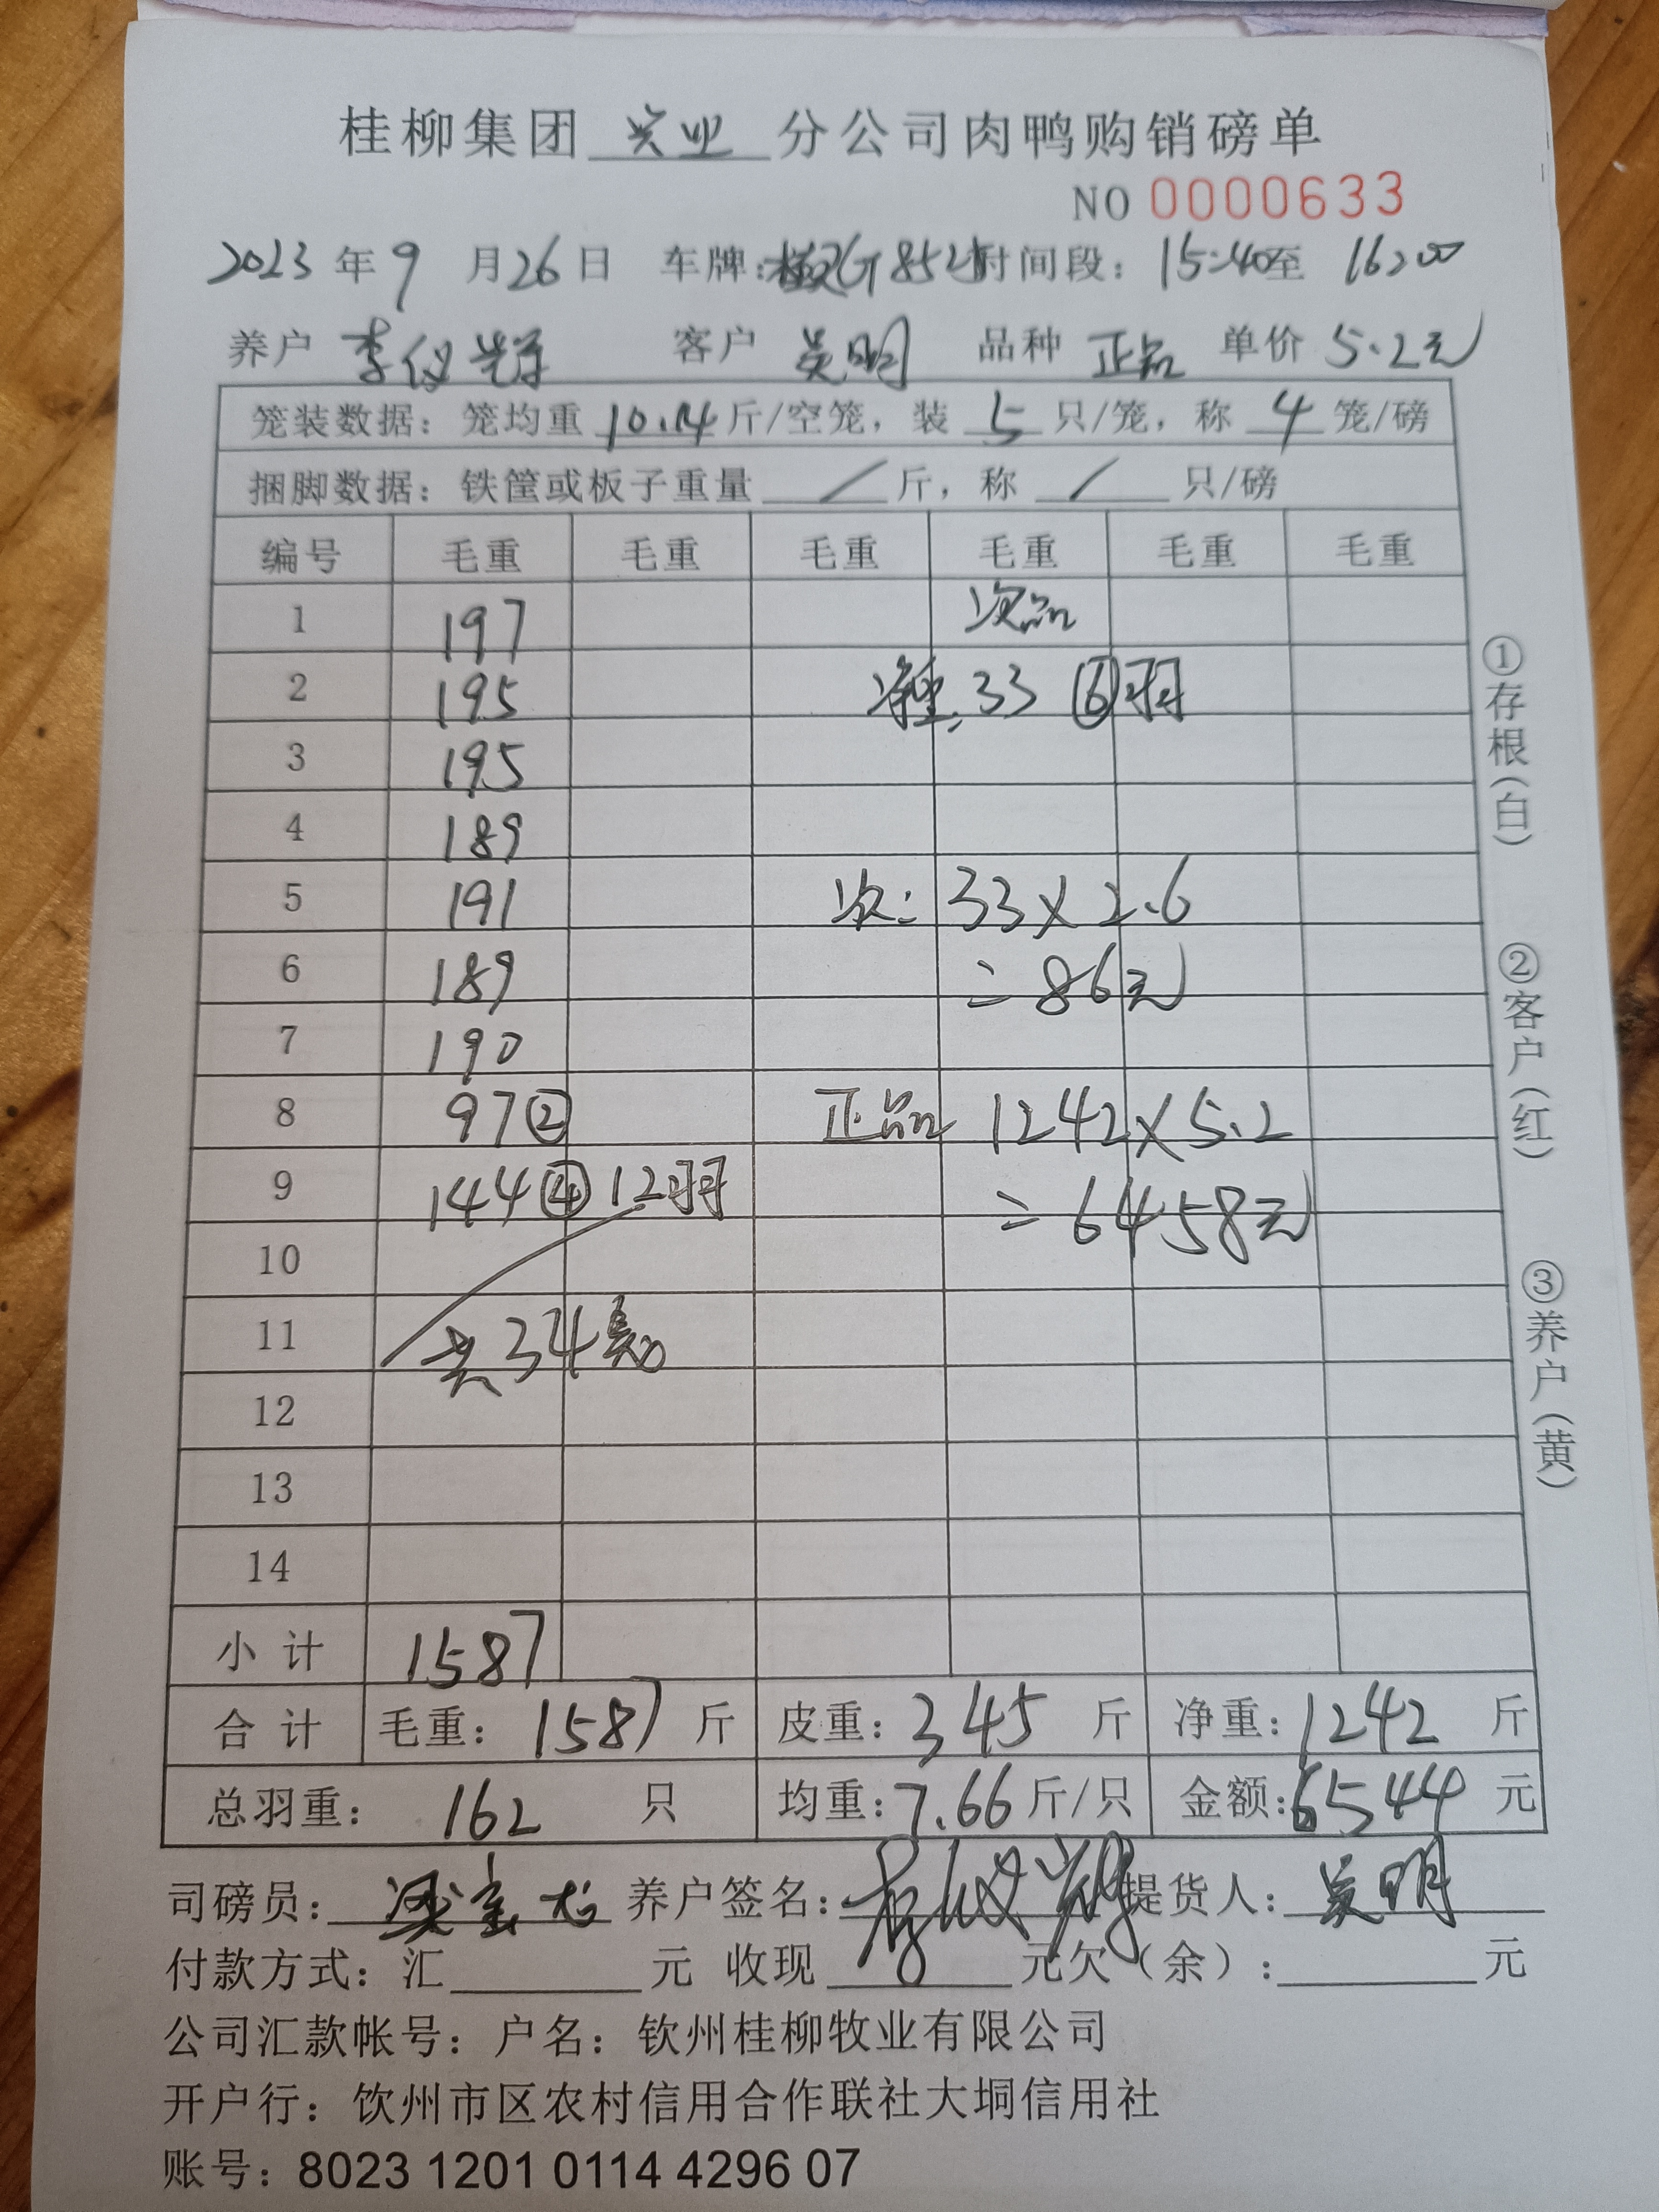 桂柳集团 兴业 分公司肉鸭购销磅单
NO 0000633
2023 年 9 月 26 日 车牌: 时间段: 15:40 至 16:00
养户 李仪 客户 吴明 品种 正品 单价 5.2元
笼装数据: 笼均重 10.14 斤/空笼, 装 5 只/笼, 称 4 笼/磅
捆脚数据: 铁筐或板子重量 / 斤, 称 / 只/磅
编号 毛重 毛重 毛重 毛重 毛重 毛重
1 197 次品
2 195 净重: 33 ⑥羽
3 195
4 189
5 191 次: 33×2.6
6 189 =86元
7 190
8 97② 正品 1242×5.2
9 144④ 12羽 =6458元
10
11 共34
12
13
14
小计 1587
合计 毛重: 1587 斤 皮重: 345 斤 净重: 1242 斤
总羽重: 162 只 均重: 7.66 斤/只 金额: 6544 元
司磅员: 养户签名: 提货人: 吴明
付款方式: 汇 元 收现 元 欠(余): 元
公司汇款帐号: 户名: 钦州桂柳牧业有限公司
开户行: 饮州市区农村信用合作联社大垌信用社
账号: 8023 1201 0114 4296 07
①存根(白)
②客户(红)
③养户(黄)